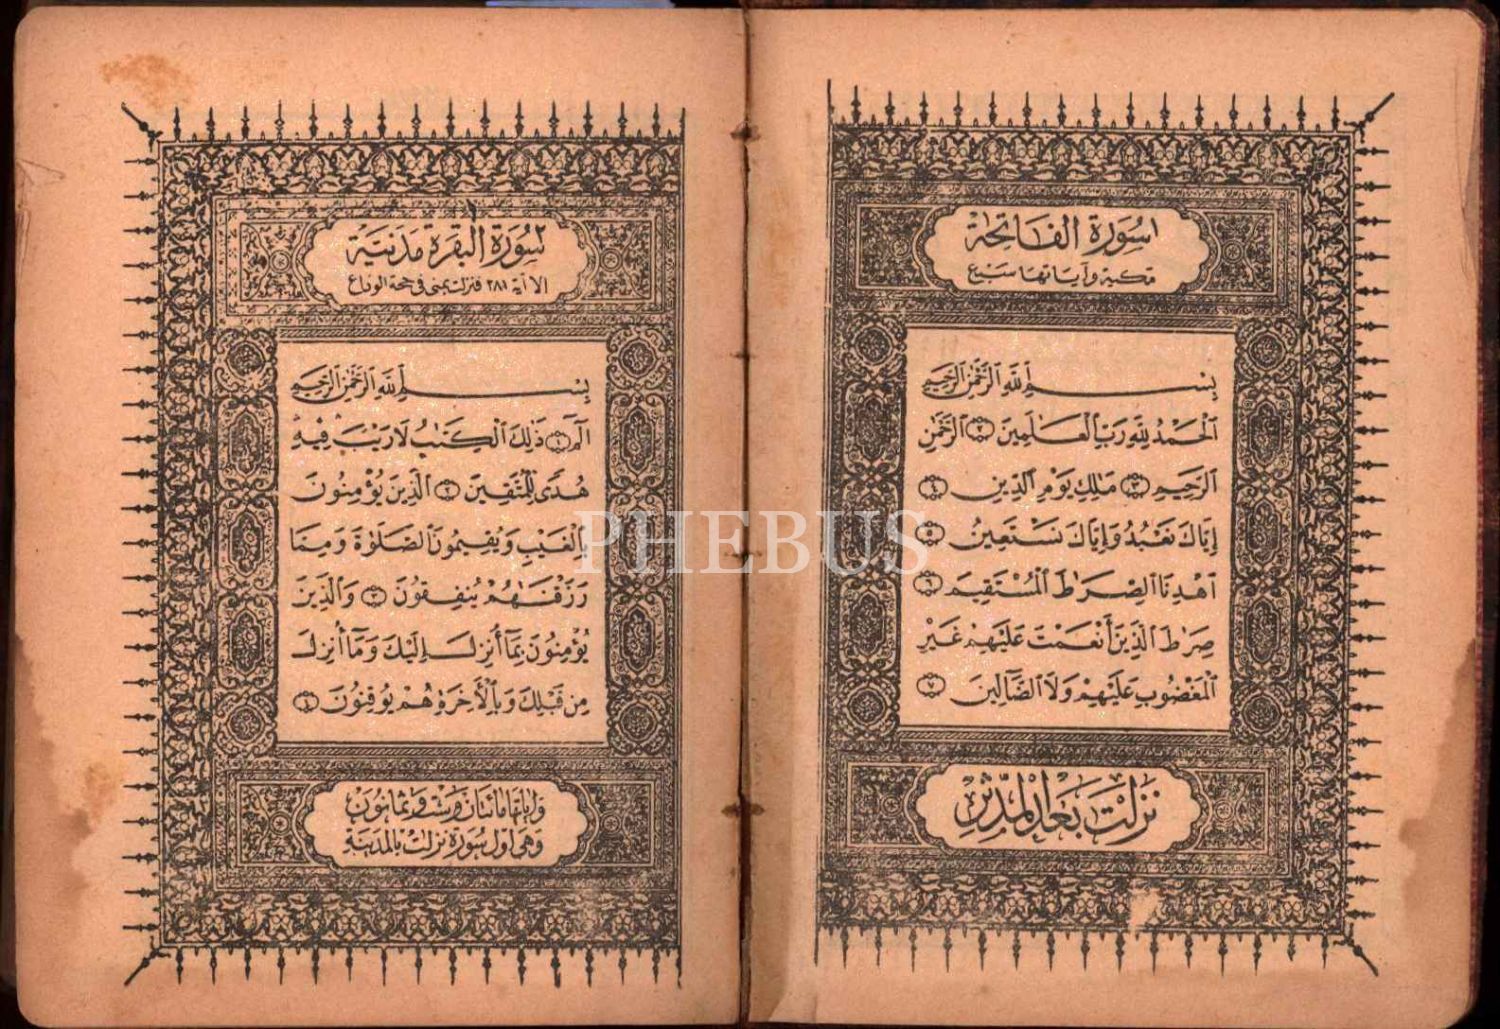 ١ سورة الفاتحة
مكية وآياتها سبع
بِسْمِ ٱللَّهِ ٱلرَّحْمَٰنِ ٱلرَّحِيمِ
ٱلْحَمْدُ لِلَّهِ رَبِّ ٱلْعَٰلَمِينَ ٢ ٱلرَّحْمَٰنِ
ٱلرَّحِيمِ ٣ مَٰلِكِ يَوْمِ ٱلدِّينِ ٤
إِيَّاكَ نَعْبُدُ وَإِيَّاكَ نَسْتَعِينُ ٥
ٱهْدِنَا ٱلصِّرَٰطَ ٱلْمُسْتَقِيمَ ٦
صِرَٰطَ ٱلَّذِينَ أَنْعَمْتَ عَلَيْهِمْ غَيْرِ
ٱلْمَغْضُوبِ عَلَيْهِمْ وَلَا ٱلضَّآلِّينَ ٧
نزلت بعد المدثر
٢ سورة البقرة مدنية
الا آية ٢٨١ فنزلت بمنى في حجة الوداع
بِسْمِ ٱللَّهِ ٱلرَّحْمَٰنِ ٱلرَّحِيمِ
الٓمٓ ١ ذَٰلِكَ ٱلْكِتَٰبُ لَا رَيْبَ فِيهِ
هُدًى لِّلْمُتَّقِينَ ٢ ٱلَّذِينَ يُؤْمِنُونَ
بِٱلْغَيْبِ وَيُقِيمُونَ ٱلصَّلَوٰةَ وَمِمَّا
رَزَقْنَٰهُمْ يُنفِقُونَ ٣ وَٱلَّذِينَ
يُؤْمِنُونَ بِمَآ أُنزِلَ إِلَيْكَ وَمَآ أُنزِلَ
مِن قَبْلِكَ وَبِٱلْأَخِرَةِ هُمْ يُوقِنُونَ ٤
وآياتها مائتان وست وثمانون
وهى أول سورة نزلت بالمدينة
PHEBUS